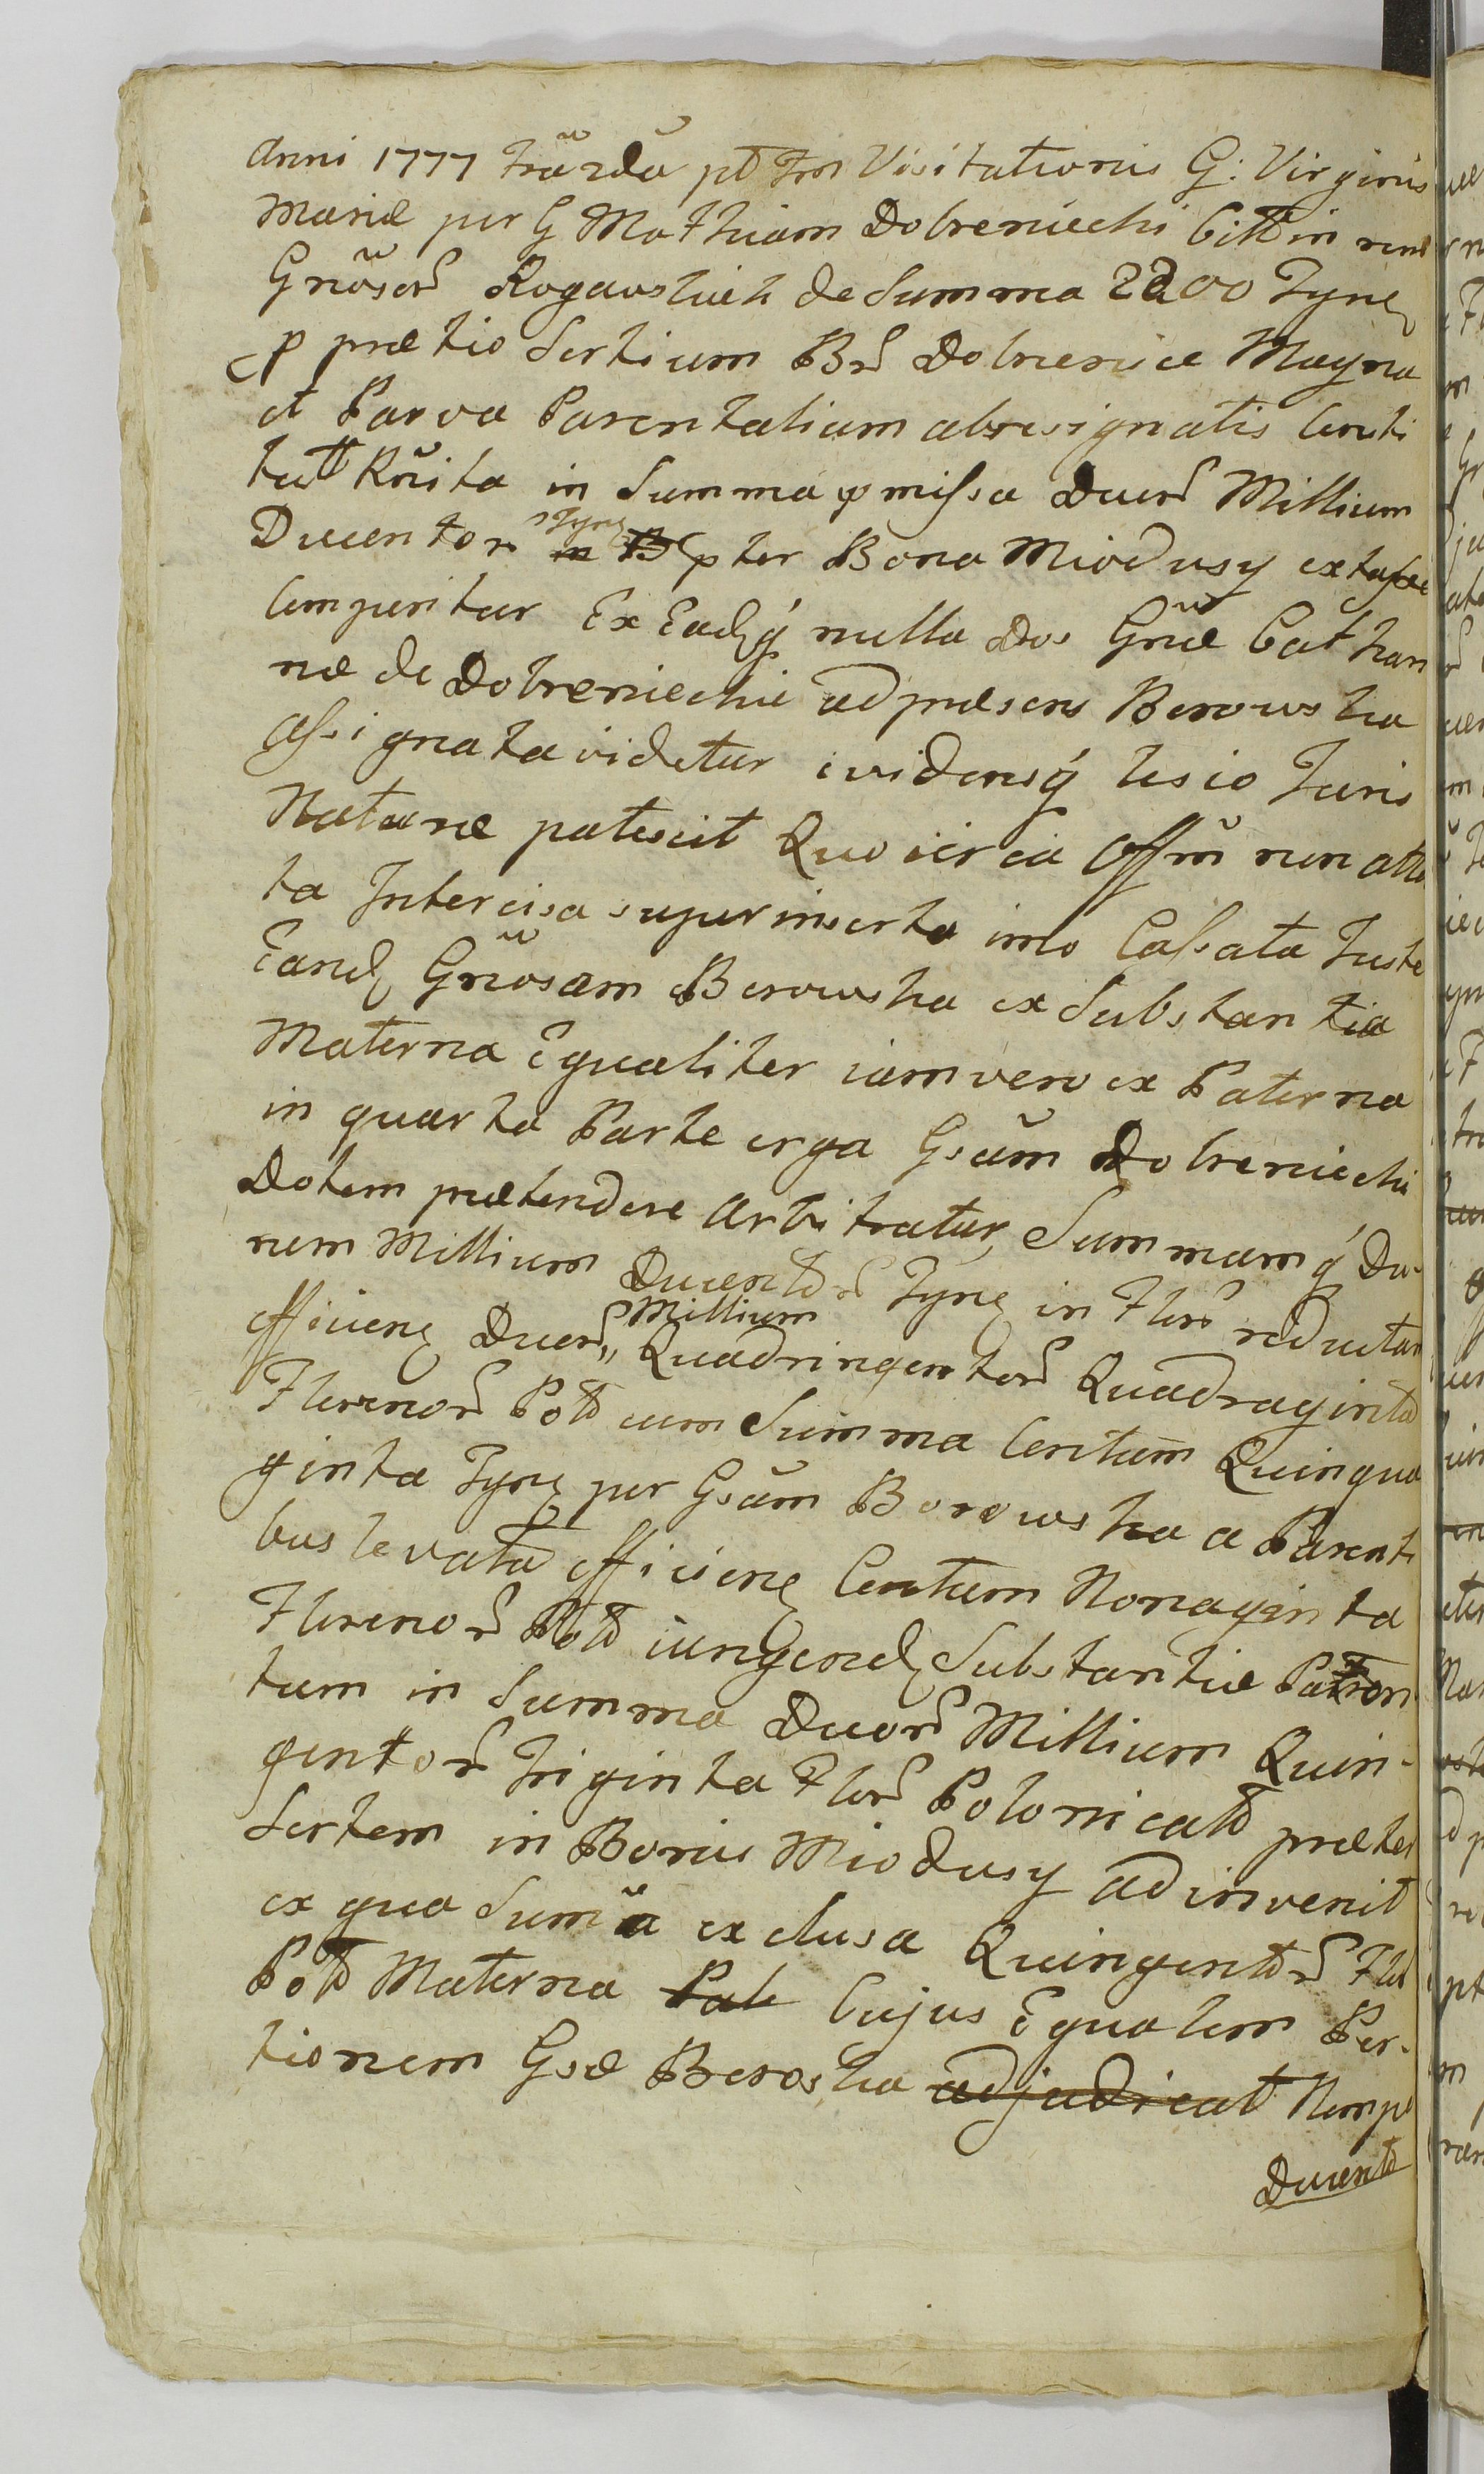 Anni 1777 pt Visitationis G: Virginis
Mariæ per G Mathiam Dobreniecki in
Gnoser Rogawskich de Summa 2200 Tynf
p prætio Sortium Br Dobrenice Magna
et Parva Parentalium abresignatis
in Summa pmissa Duor Millium
Ducentor Tynf pter Bona Miodusy
Comperitur Ex Eadq nulla Dos Gnæ Cathari
næ de Dobrenieckie ad præsens Borowska
Assignata videtur evidensq lesio Juris
Naturæ patescit Quo circa Offm non
ta Intercisa superinserta imo Cassata Juste
Eand Gnosam Borowska ex Substantia
Materna Equaliter iam vero ex Paterna
in quarta Parte erga Gsum Dobreniecki
Dotem prætendere Arbitratur, Summamq Duo-
rum Millium Ducentor Tynf in Flor reductam
efficien Duor Millium Quadringentor Quadraginta
Florenor Pol cum Summa Centum Quinqua
ginta Tynf per Gsam Borowska a Parenti
bus levata efficien Centum Nonaginta
Florenor Pol iungend Substantiæ
tum in Summa Duor Millium Quin-
gentor Triginta Flor Polonical præter
Sortem in Bonis Miodusy adinvenit
ex qua Suma exclusa Quingentor Flor
Pol Materna Cujus Equalem Por-
tionem Gsæ Boroska adjudicat Nempe
Ducent